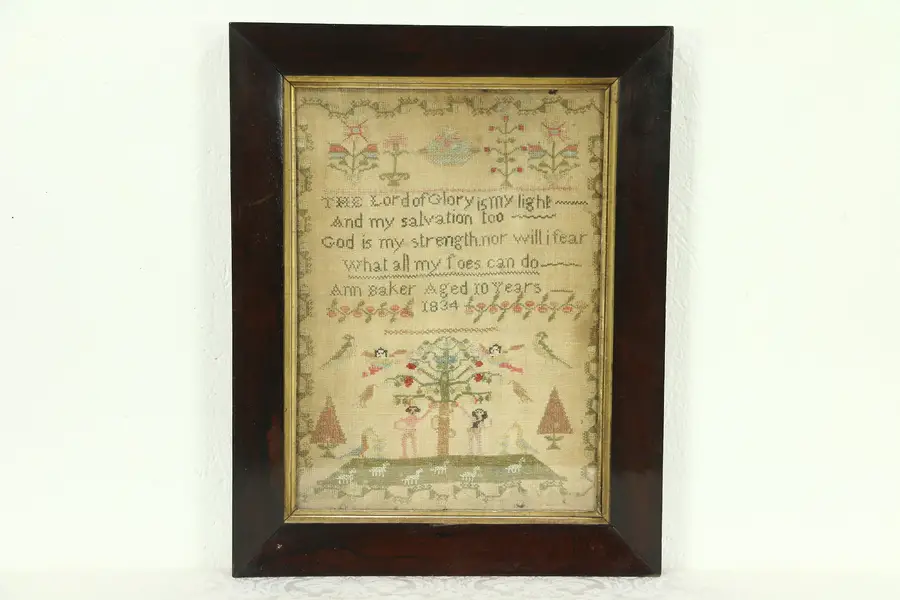 THE Lord of Glory is my light
And my salvation too
God is my strength. nor will i fear
What all my foes can do
Ann Baker Aged 10 Years
1834